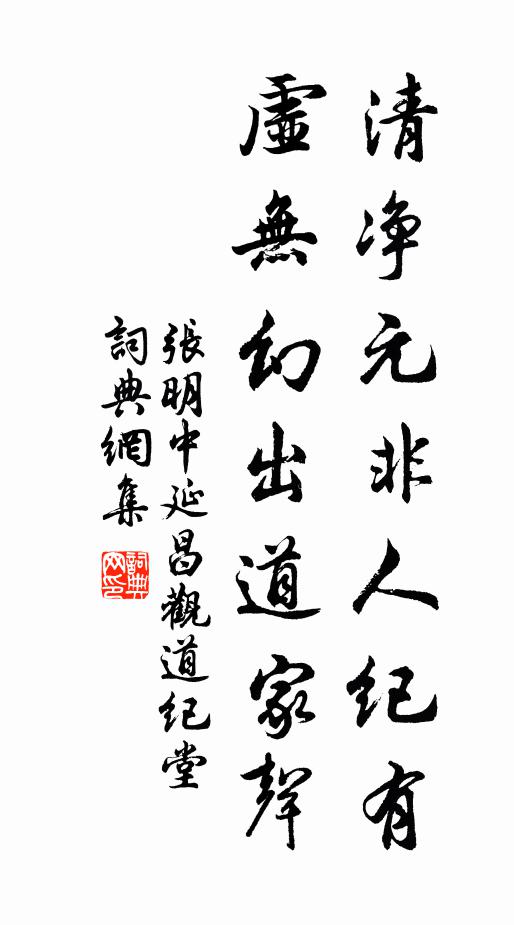 清净元非人纪有
虛無幻出道家聲
張明中延昌觀道纪堂
詞典網集
詞典網印